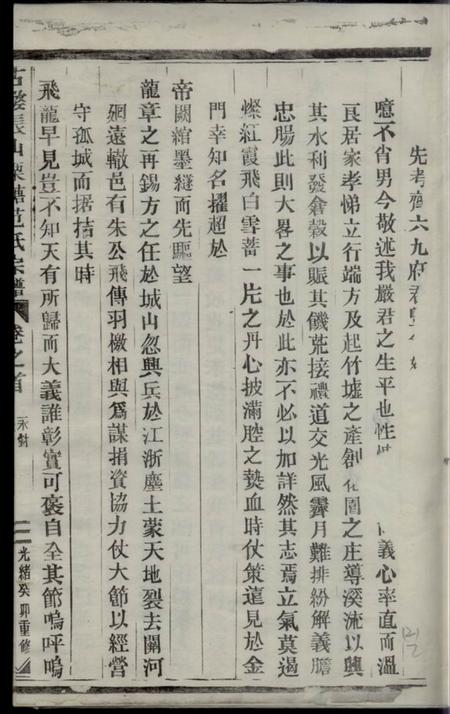 先考齊六九府君
噫不肖男今敬述我嚴君之生平也性 義心率直而溫
良居家孝悌立行端方及起竹墟之產創 圍之庄導溪流以興
其水利發倉穀以賑其饑荒接禮道交光風霽月難排紛解義膽
忠腸此則大畧之事也於此亦不必以加詳然其志焉立氣莫遏
燦紅霞飛白雪蓄一片之丹心披滿腔之熱血時仗策蓬見於金
門幸知名擢超於
帝闕綰墨縫而先驅望
龍章之再錫方之任於城山忽興兵於江浙塵土蒙天地裂去關河
迥遠轍邑有朱公飛傳羽檄相與爲謀捐資協力仗大節以經營
守孤城而据拮其時
飛龍早見豈不知天有所歸而大義誰彰實可褒自全其節嗚呼嗚
古婺長山栗塘范氏宗譜 卷之首 永錫 二 光緒癸卯重修